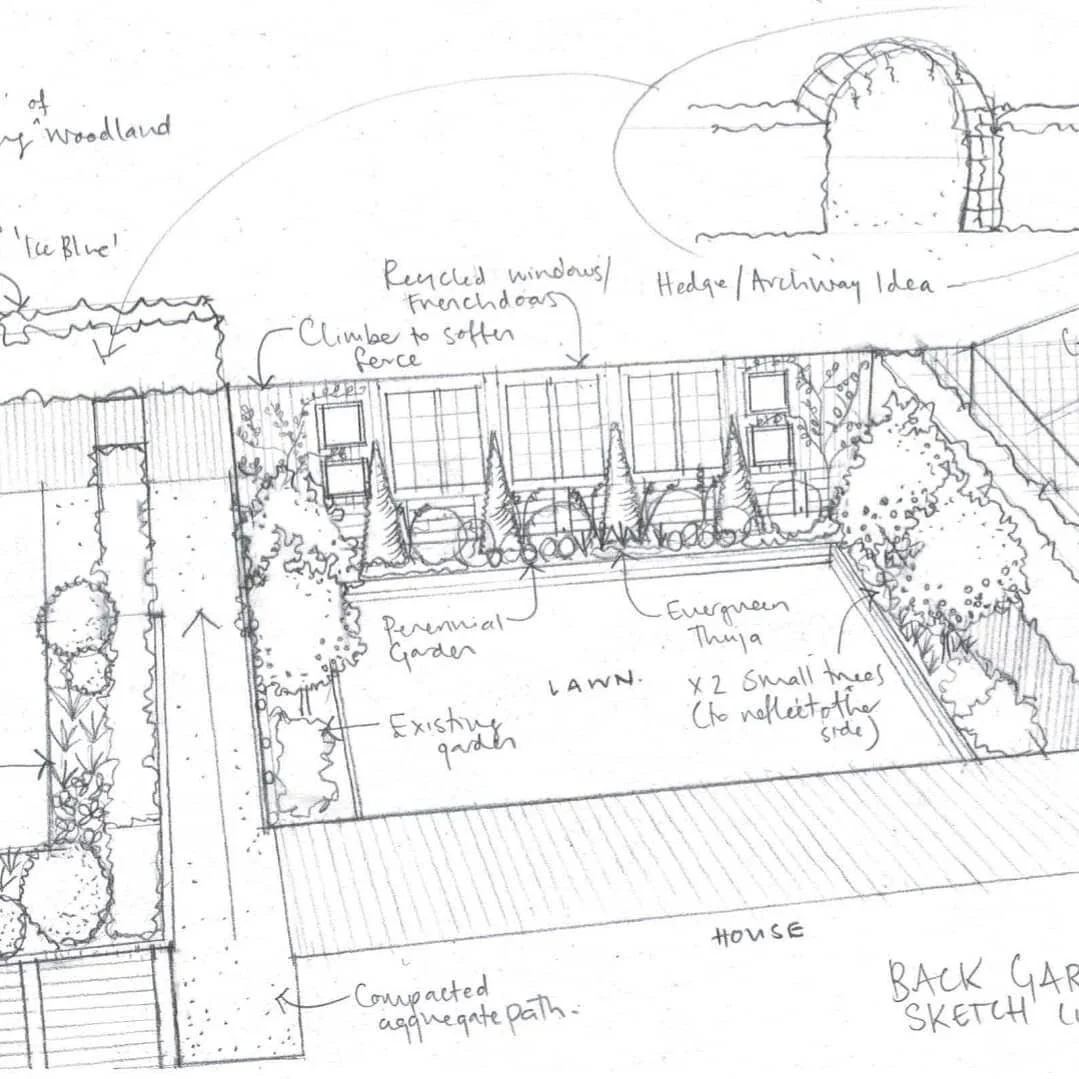 of
Woodland
'Ice Blue'
Recycled windows/
Frenchdoors
Hedge/Archway Idea
Climber to soften
fence
Perennial
Garden
Evergreen
Thuja
LAWN.
x 2 Small trees
(to reflect other
side)
Existing
garden
HOUSE
Compacted
aggregate path.
BACK GAR
SKETCH